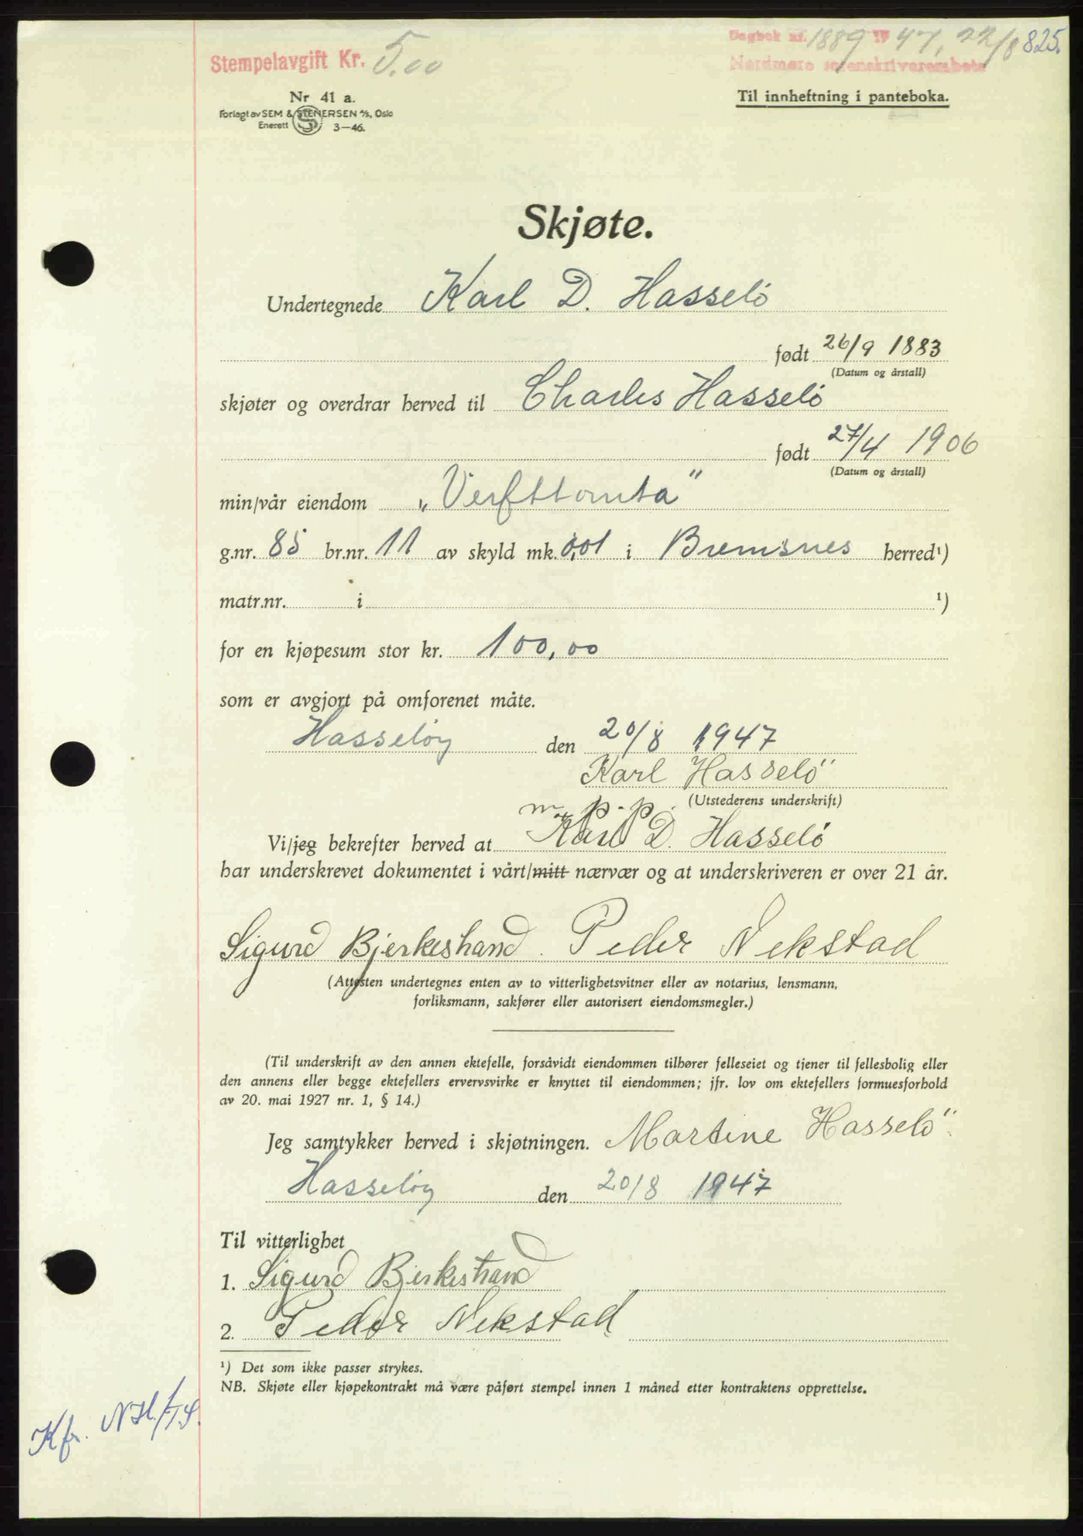 Stempelavgift Kr. 5.00
Dagbok nr. 1889 19 47, 22/8 825.
Nordmøre sorenskriverembete
Nr 41 a.
Forlagt av SEM & STENERSEN A/S, Oslo
Enerett 3—46.
Til innheftning i panteboka.
Skjøte.
Undertegnede Karl D. Hasselö
født 26/9 1883
(Datum og årstall)
skjøter og overdrar herved til Charles Hasselö
født 27/4 1906
(Datum og årstall)
min/vår eiendom „Verfttomta"
g.nr. 85 br.nr. 11 av skyld mk. 0,01 i Bremsnes herred¹)
matr.nr. i ¹)
for en kjøpesum stor kr. 100,00
som er avgjort på omforenet måte.
Hasseløy den 20/8 1947
Karl Hasselö
(Utstederens underskrift)
m. p. p.
Vi/jeg bekrefter herved at Karl D. Hasselö
har underskrevet dokumentet i vårt/mitt nærvær og at underskriveren er over 21 år.
Sigurd Bjerkestrand. Peder Nekstad
(Attesten undertegnes enten av to vitterlighetsvitner eller av notarius, lensmann,
forliksmann, sakfører eller autorisert eiendomsmegler.)
(Til underskrift av den annen ektefelle, forsåvidt eiendommen tilhører felleseiet og tjener til fellesbolig eller
den annens eller begge ektefellers ervervsvirke er knyttet til eiendommen; jfr. lov om ektefellers formuesforhold
av 20. mai 1927 nr. 1, § 14.)
Jeg samtykker herved i skjøtningen. Martine Hasselö
Hasseløy den 20/8 1947
Til vitterlighet
1. Sigurd Bjerkestrand
2. Peder Nekstad
¹) Det som ikke passer strykes.
NB. Skjøte eller kjøpekontrakt må være påført stempel innen 1 måned etter kontraktens opprettelse.
Kfr. NH/TS.